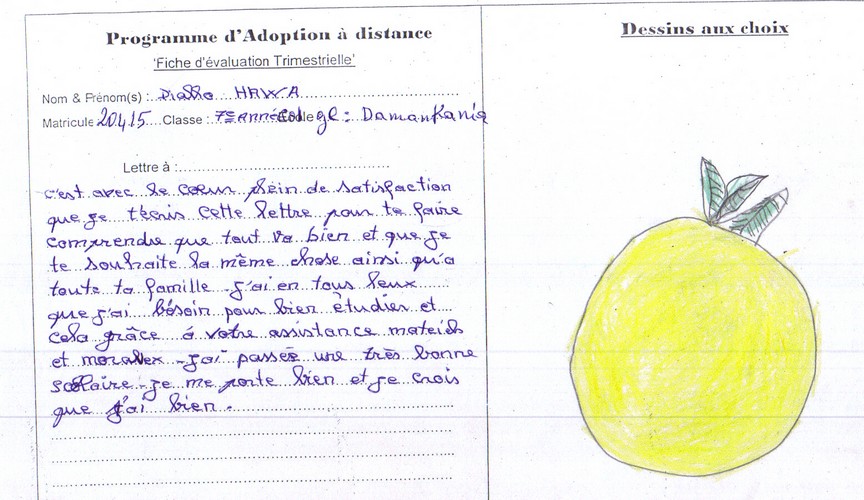 Programme d'Adoption à distance
'Fiche d'évaluation Trimestrielle'
Nom & Prénom(s) : Diallo HAWA
Matricule 20415 Classe : 7e année École gl : Damankania
Lettre à :
c'est avec le cœur plein de satisfaction
que je t'écris cette lettre pour te faire
comprendre que tout va bien et que je
te souhaite la même chose ainsi qu'a
toute ta famille - j'ai en tous leux
que j'ai bésoin pour bien étudier et
cela grâce á votre assistance materiels
et morales - j'ai passée une très bonne
scolaire - je me porte bien et je crois
que j'ai bien .
Dessins aux choix